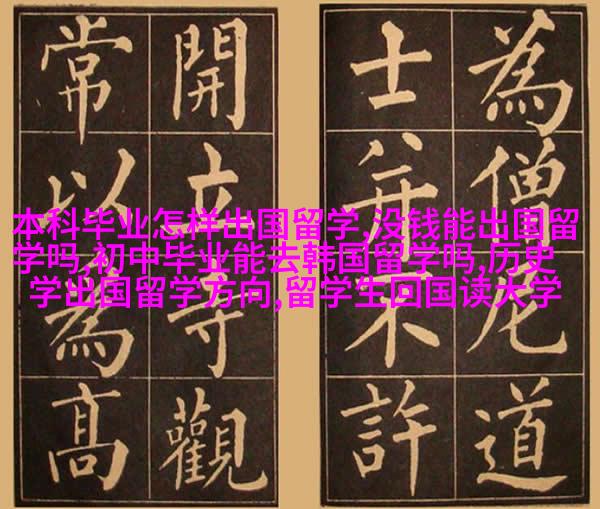 為僧尼道
士并不許
開立寺觀
常以為高
本科毕业怎样出国留学,没钱能出国留
学吗,初中毕业能去韩国留学吗,历史
学出国留学方向,留学生回国读大学